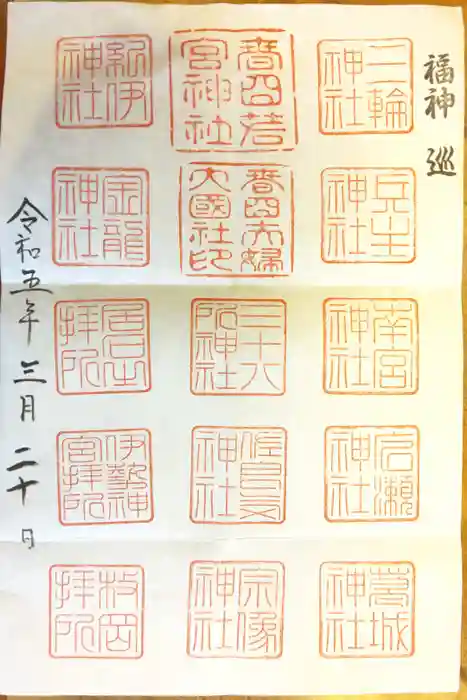 福神巡
三輪
神社
兵主
神社
南宮
神社
広瀬
神社
葛城
神社
春日若
宮神社
春日夫婦
大國社印
三十八
所神社
佐良气
神社
宗像
神社
紀伊
神社
金龍
神社
拝所
伊勢神
宮拝所
枚岡
拝所
令和五年三月二十日